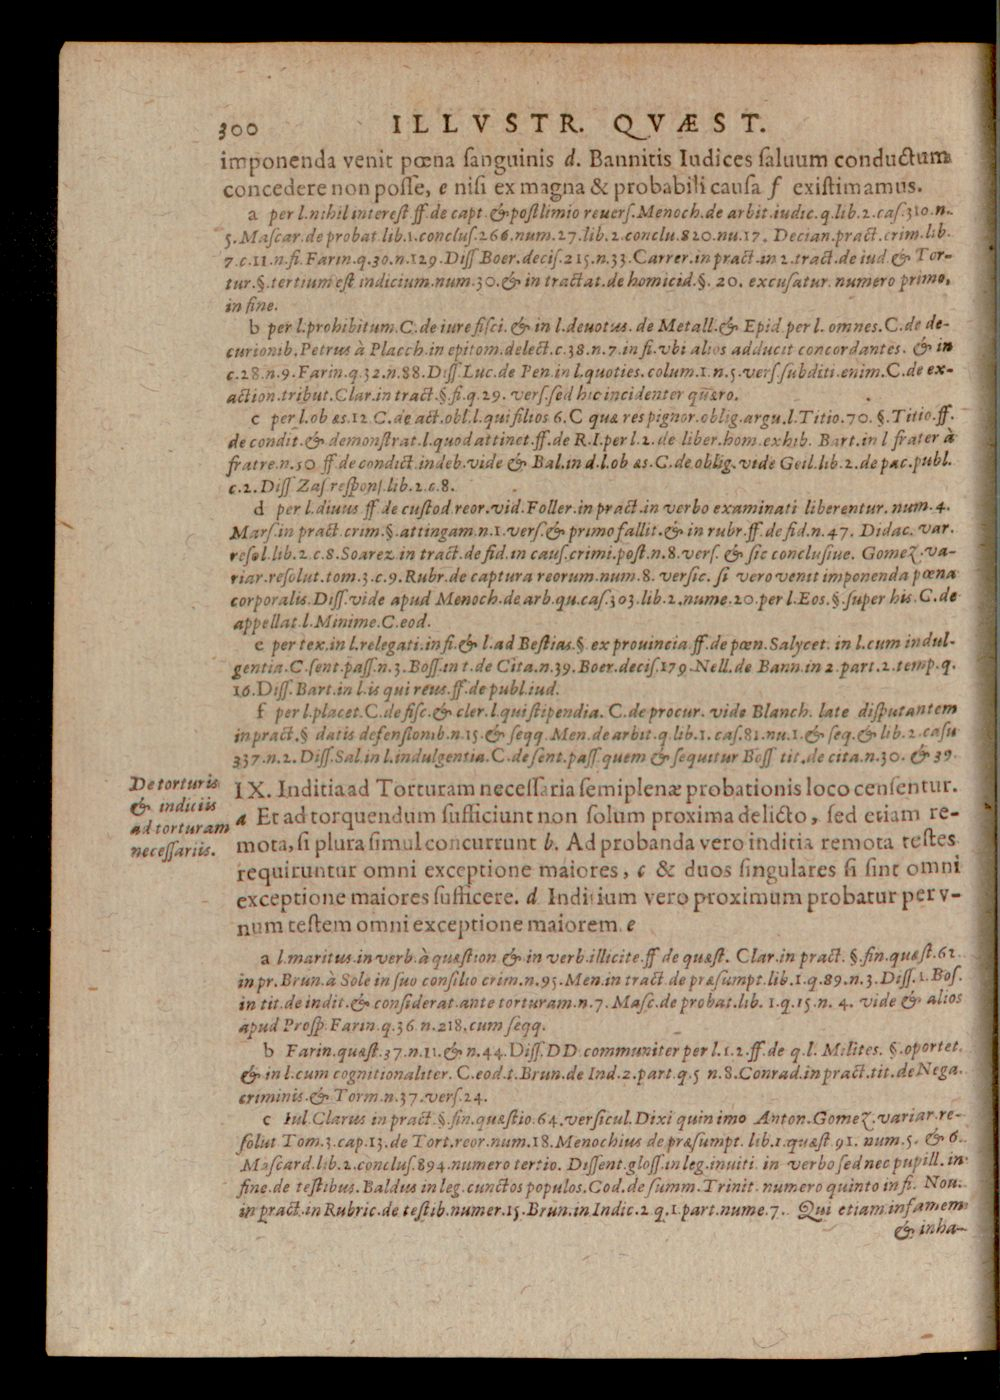 300 ILLVSTR. QVÆST.
imponenda venit pœna ſanguinis d. Bannitis Iudices ſaluum conductum
concedere non poſſe, e niſi ex magna & probabili cauſa f exiſtimamus.
a per l.nihil intereſt ff.de capt.& poſtlimio reuerſ.Menoch.de arbit.iudic.q.lib.2.caſ.310.n.
5.Maſcar.de probat.lib.1.concluſ.266.num.27.lib.2.conclu.820.nu.17. Decian.pract.crim.lib.
7.c.11.n.fi.Farin.q.30.n.129.Diſſ Boer.deciſ.215.n.33.Carrer.in pract.in 2.tract.de iud.& Tor-
tur.§.tertium eſt indicium.num.30.& in tractat.de homicid.§. 20. excuſatur numero primo,
in fine.
b per l.prohibitum.C.de iure fiſci.& in l.deuotus. de Metall.& Epid.per l. omnes.C.de de-
curionib.Petrus à Placch.in epitom.delect.c.38.n.7.in fi.vbi alios adducit concordantes. & in
c.28.n.9.Farin.q.32.n.88.Diſſ.Luc.de Pen.in l.quoties.colum.1.n.5.verſ.ſubditi enim.C.de ex-
action.tribut.Clar.in tract.§.fi.q.29. verſ.ſed hic incidenter quæro.
c per l.ob æs.12 C.de act.obl.l.qui filios 6.C quæ res pignor.oblig.argu.l.Titio.70. §.Titio.ff.
de condit.& demonſtrat.l.quod attinet.ff.de R.I.per l.2.de liber.hom.exhib. Bart.in l frater à
fratre.n.50 ff.de condict.indeb.vide & Bal.in d.l.ob æs.C.de oblig.vide Geil.lib.2.de pac.publ.
c.2.Diſſ Zaſ.reſponſ.lib.2.c.8.
d per l.diuus ff.de cuſtod.reor.vid.Foller.in pract.in verbo examinati liberentur. num.4.
Marſ.in pract crim.§.attingam.n.1.verſ.& primo fallit.& in rubr.ff.de fid.n.47. Didac. var.
reſol.lib.2.c.8.Soarez in tract.de fid.in cauſ.crimi.poſt.n.8.verſ. & ſic concluſiue. Gomez.va-
riar.reſolut.tom.3.c.9.Rubr.de captura reorum.num.8. verſic. ſi vero venit imponenda pœna
corporalis.Diſſ.vide apud Menoch.de arb.qu.caſ.303.lib.2.nume.20.per l.Eos.§.ſuper his.C.de
appellat.l.Minime.C.eod.
e per tex.in l.relegati.in fi.& l.ad Beſtias.§ ex prouincia.ff.de pœn.Salycet. in l.cum indul-
gentia.C.ſent.paſſ.n.3.Boſſ.in t.de Cita.n.39.Boer.deciſ.179.Nell.de Bann.in 2 part.2.temp.q.
16.Diſſ.Bart.in l.is qui reus.ff.de publ.iud.
f per l.placet.C.de fiſc.& cler.l.qui ſtipendia. C.de procur. vide Blanch. late diſputantem
in pract.§ datis defenſionib.n.15.& ſeqq.Men.de arbit.q.lib.1.caſ.81.nu.1.& ſeq.& lib.2.caſu
337.n.2.Diſſ.Sal.in l.indulgentia.C.de ſent.paſſ quem & ſequitur Boſſ tit.de cita.n.30. & 39.
De torturis
& indiciis
ad torturam
neceſſariis.
IX. Inditia ad Torturam neceſſaria ſemiplenæ probationis loco cenſentur.
a Et ad torquendum ſufficiunt non ſolum proxima delicto, ſed etiam re-
mota, ſi plura ſimul concurrunt b. Ad probanda vero inditia remota teſtes
requiruntur omni exceptione maiores, c & duos ſingulares ſi ſint omni
exceptione maiores ſufficere. d Inditium vero proximum probatur per v-
num teſtem omni exceptione maiorem e
a l.maritus.in verb.à quæſtion & in verb.illicite.ff de quæſt. Clar.in pract. §.fin.quæſt.62.
in pr.Brun.à Sole in ſuo conſilio crim.n.95.Men.in tract de præſumpt.lib.1.q.89.n.3.Diſſ.1.Boſ.
in tit.de indit.& conſiderat.ante torturam.n.7. Maſc.de probat.lib. 1.q.15.n. 4. vide & alios
apud Proſp Farin.q.36 n.218.cum ſeqq.
b Farin.quæſt.37.n.11.& n.44.Diſſ.DD communiter per l.1.2.ff.de q.l. Milites. §.oportet.
& in l.cum cognitionaliter. C.eod.t.Brun.de Ind.2.part.q.5 n.8.Conrad.in pract.tit.de Nega.
criminis.& Torm.n.37.verſ.24.
c Iul.Clarus in pract.§.fin.quæſtio.64.verſicul.Dixi quinimo Anton.Gomez.variar.re-
ſolut Tom.3.cap.13.de Tort.reor.num.18.Menochius de præſumpt. lib.1.quæſt 91. num.5. & 6.
Maſcard.lib.2.concluſ.894.numero tertio. Diſſent.gloſſ.in leg.inuiti in verbo ſed nec pupill.in
fine.de teſtibus.Baldus in leg.cunctos populos.Cod.de ſumm.Trinit.numero quinto in fi. Nou.
in pract.in Rubric.de teſtib.numer.15.Brun.in Indic.2 q.1.part.nume.7. Qui etiam infamem
& inha-